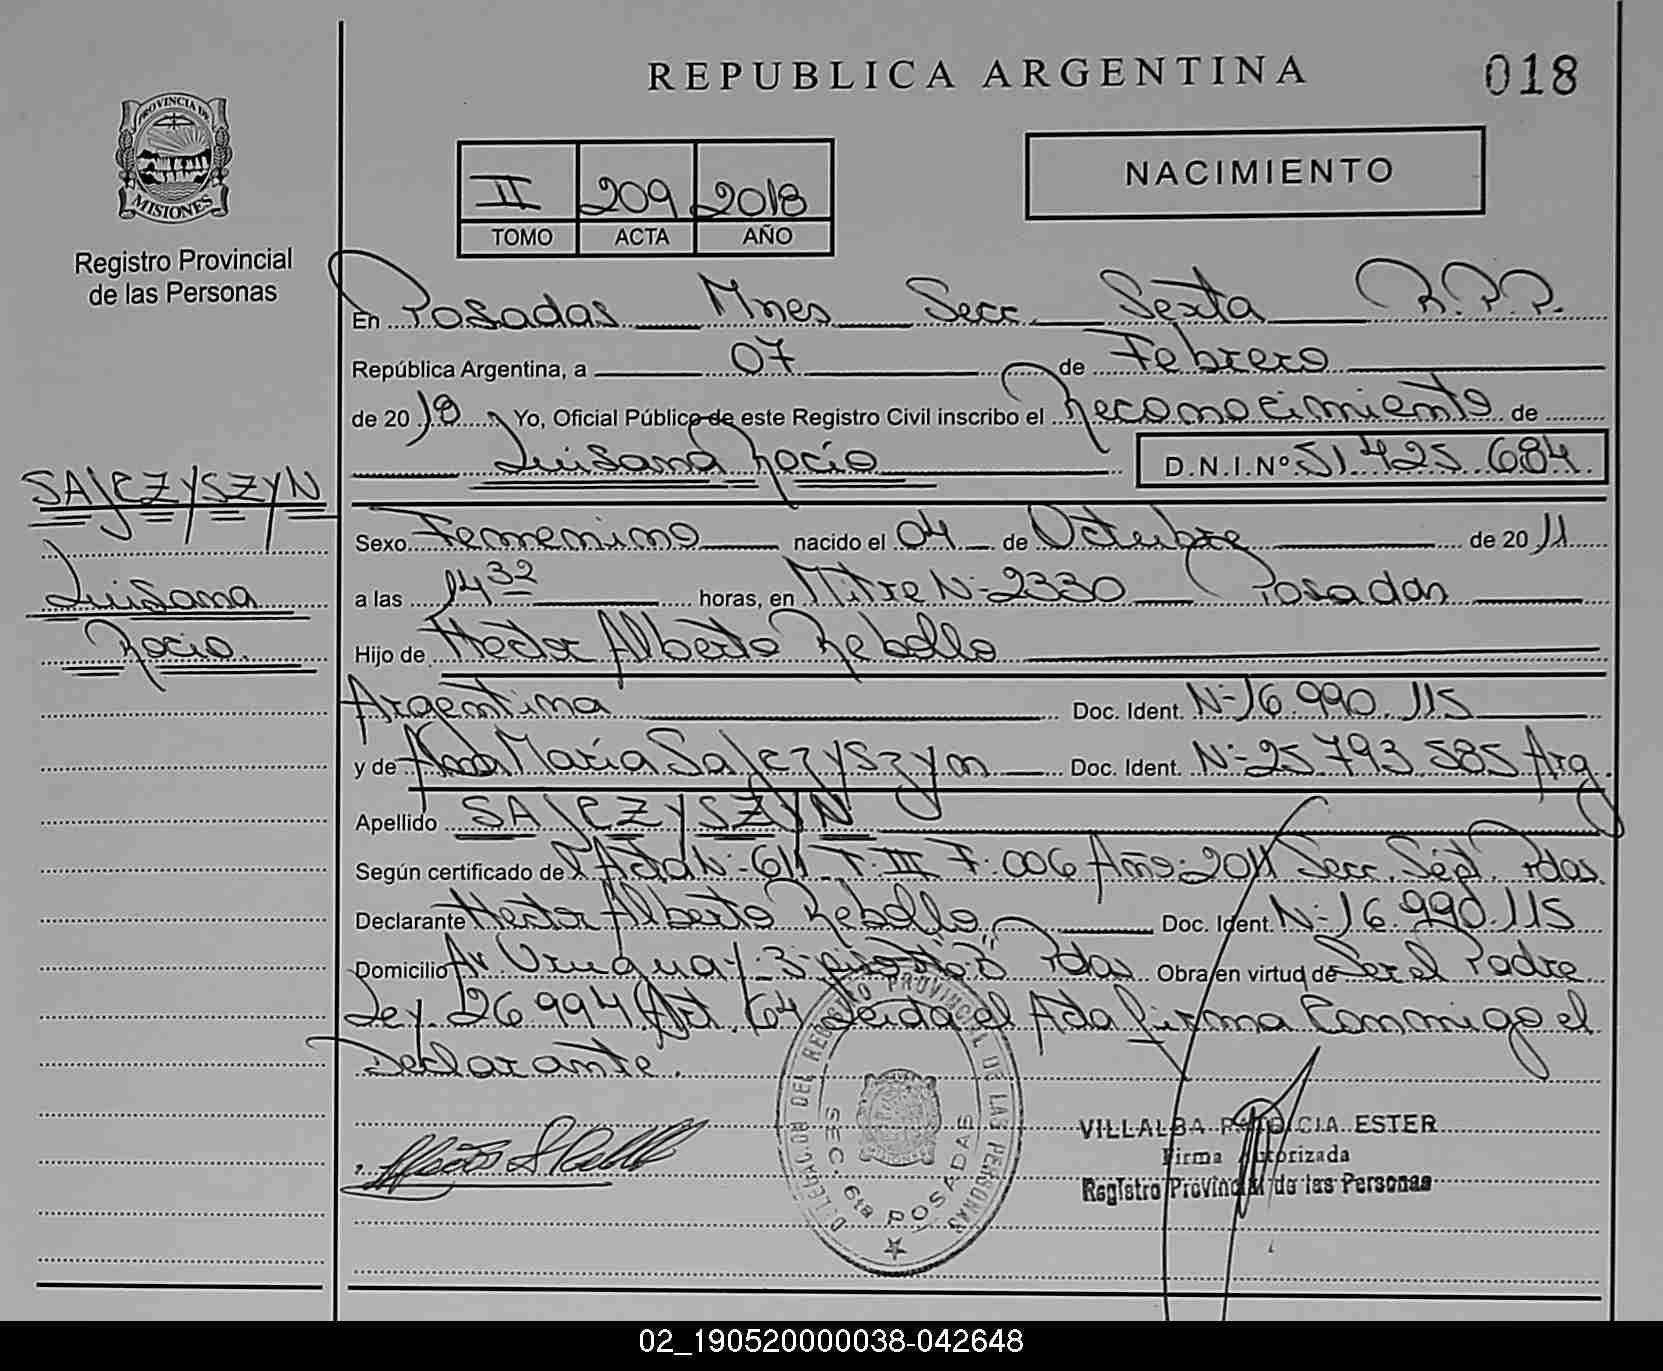 REPUBLICA ARGENTINA
018
PROVINCIA DE
MISIONES
Registro Provincial
de las Personas
II 209 2018
TOMO ACTA AÑO
NACIMIENTO
En Posadas Mnes Secc. Sexta R.P.P.
República Argentina, a 07 de Febrero
de 2018 Yo, Oficial Público de este Registro Civil inscribo el Reconocimiento de
Luisana Rocío D.N.I.Nº 51.425.684
SAJCZYSZYN
Luisana
Rocio.
Sexo Femenino nacido el 04 de Octubre de 2011
a las 14 32 horas, en Mitre N:2330 Posadas
Hijo de Hector Alberto Rebollo
Argentina Doc. Ident. N:16.990.115
y de María Sajczyszyn Doc. Ident. N:25.793.585 Arg.
Apellido SAJCZYSZYN
Según certificado del Acta N:611 T:III F:006 Año:2011 Secc. Sépt. Pdas.
Declarante Hector Alberto Rebollo Doc. Ident. N:16.990.115
Domicilio Av Uruguay 3 Pdas Obra en virtud de Ser el Padre
Ley 26994 Art. 64 Leida el Acta firma Conmigo el
Declarante.
DELEGACION DEL REGISTRO PROVINCIAL DE LAS PERSONAS
SEC. 6ta POSADAS
VILLALBA PATRICIA ESTER
Firma Autorizada
Registro Provincial de las Personas
02_190520000038-042648